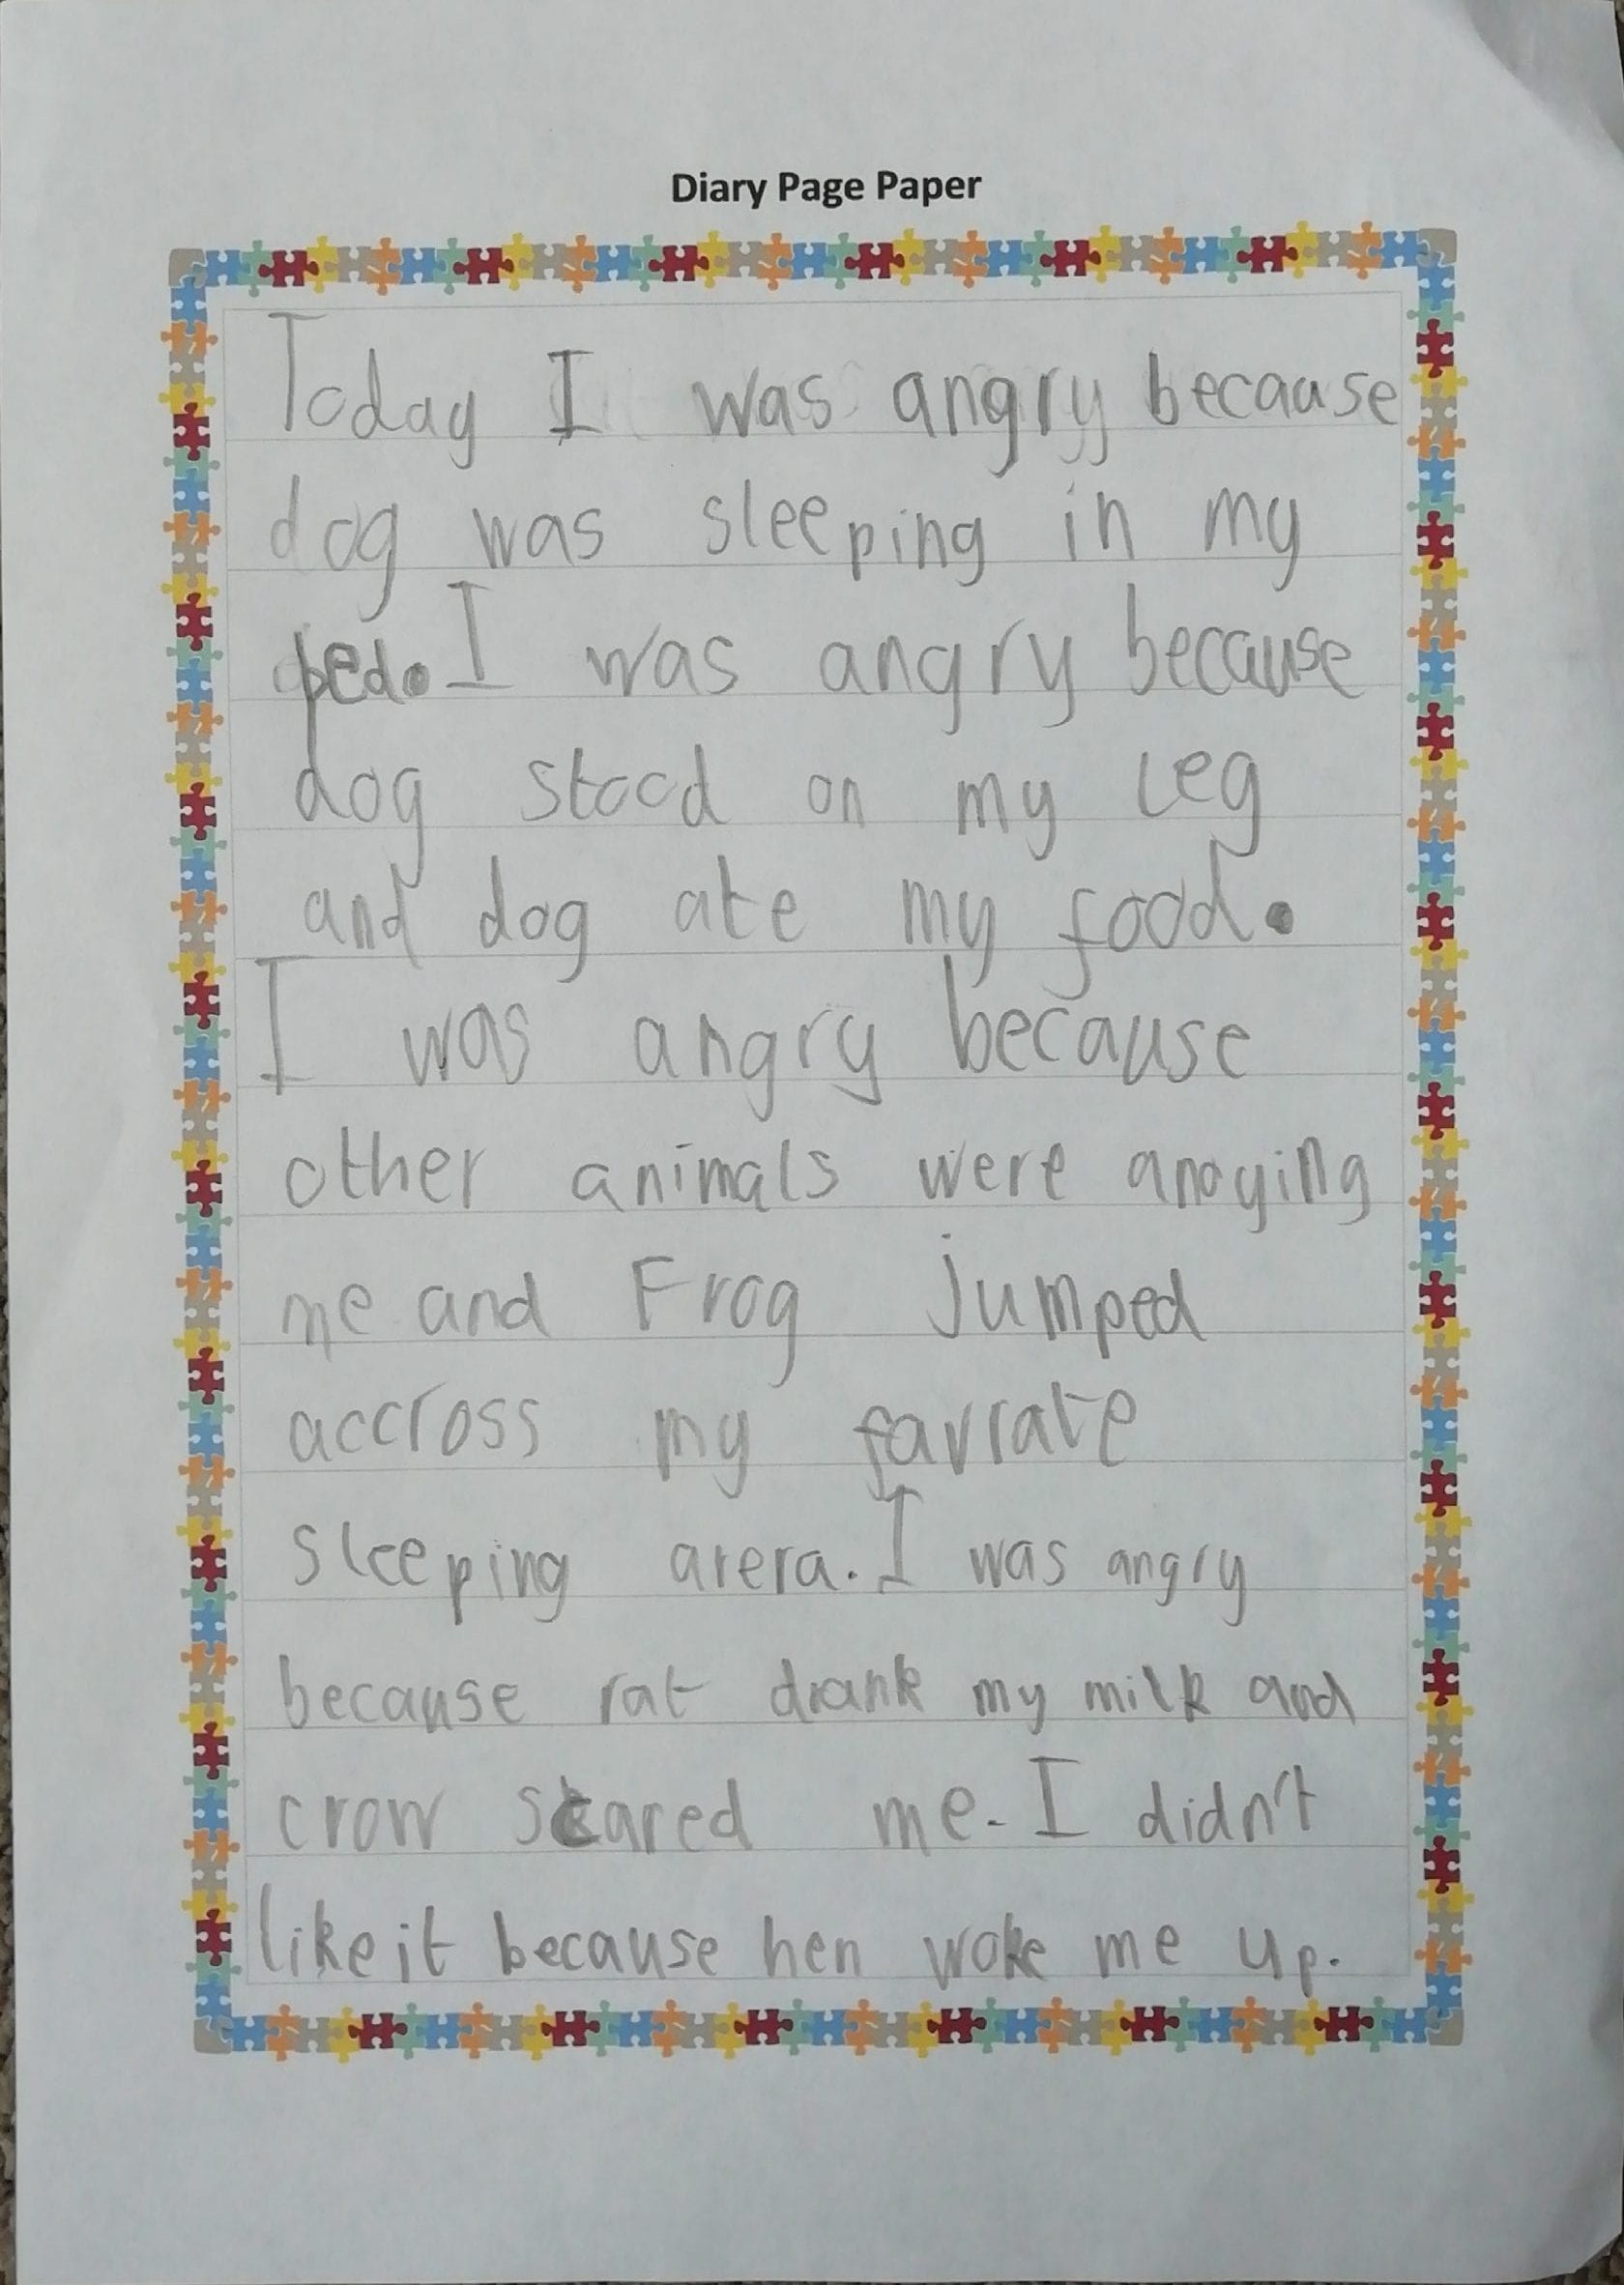 Diary Page Paper
Today I was angry because
dog was sleeping in my
bed. I was angry because
dog stood on my leg
and dog ate my food.
I was angry because
other animals were anoying
me and Frog jumped
accross my favrate
sleeping arera. I was angry
because rat drank my milk and
crow scared me. I didn't
like it because hen woke me up.